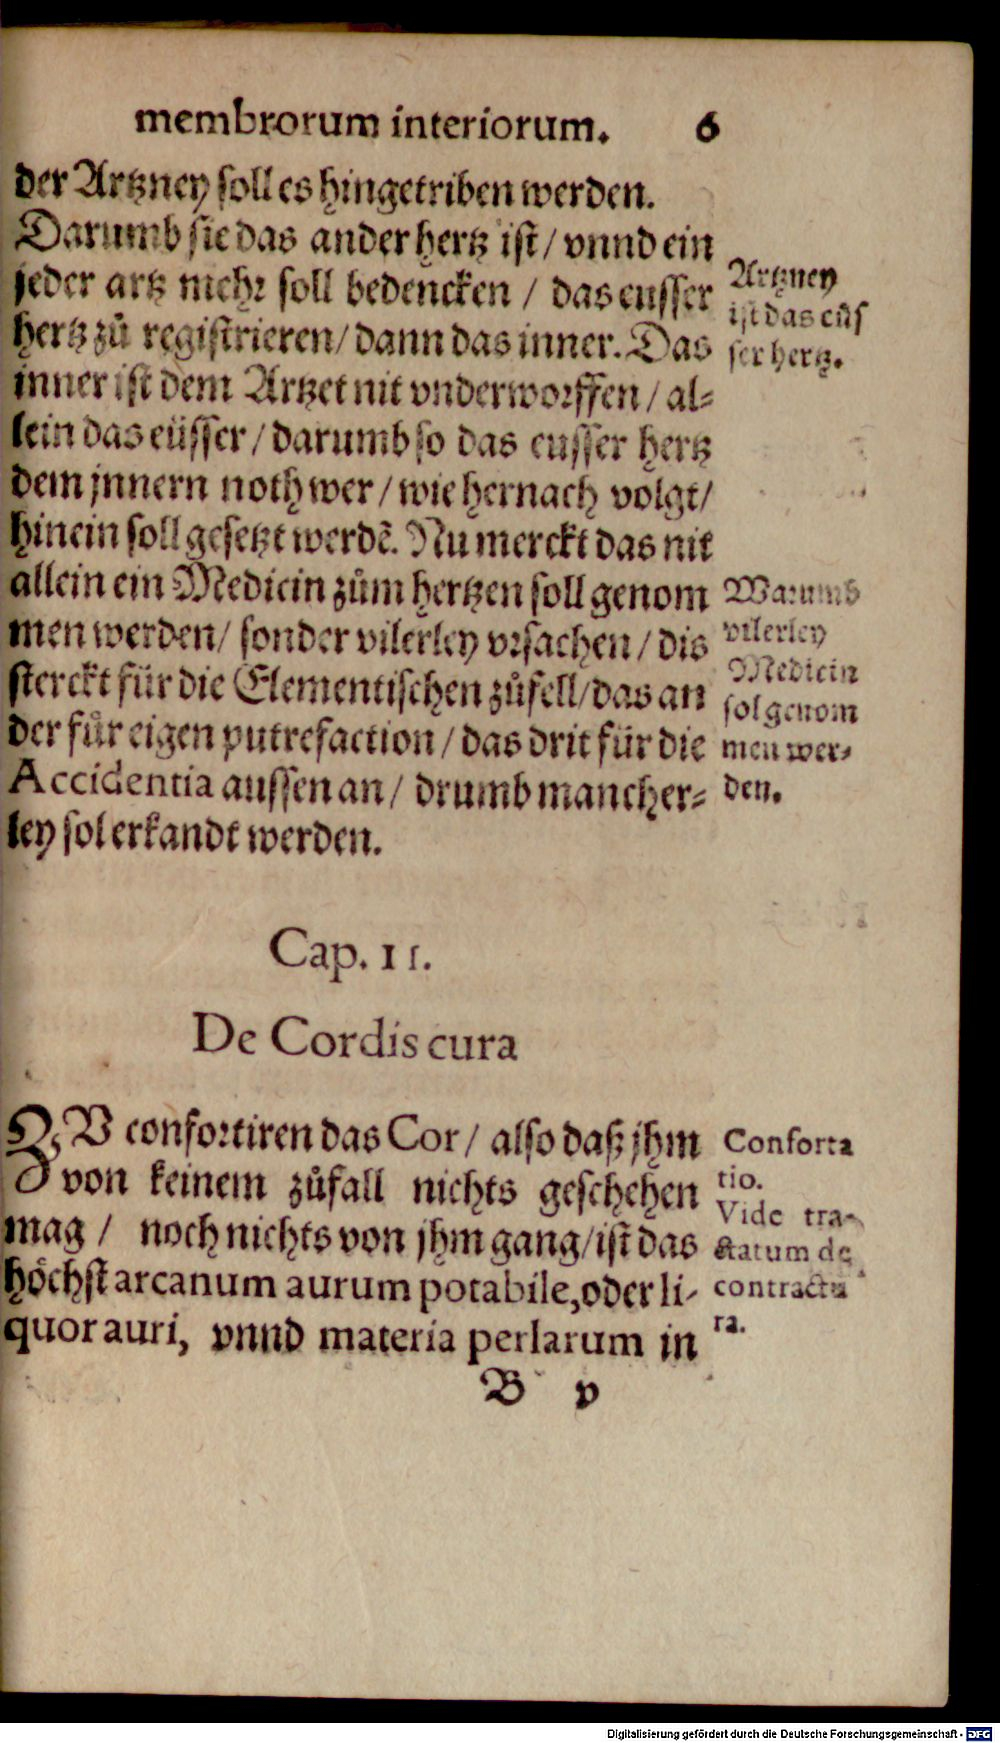 membrorum interiorum. 6
der Artzney soll es hingetriben werden.
Darumb sie das ander hertz ist / vnnd ein
jeder artz mehr soll bedencken / das eusser
hertz zů registrieren / dann das inner. Das
inner ist dem Artzet nit vnderworffen / al=
lein das eüsser / darumb so das eusser hertz
dem jnnern noth wer / wie hernach volgt /
hinein soll gesetzt werdẽ. Nu merckt das nit
allein ein Medicin zům hertzen soll genom
men werden / sonder vilerley vrsachen / dis
sterckt für die Elementischen zůfell / das an
der für eigen putrefaction / das drit für die
Accidentia aussen an / drumb mancher=
ley sol erkandt werden.
Artzney
ist das eüs
ser hertz.
Warumb
vilerley
Medicin
sol genom
men wer=
den.
Cap. II.
De Cordis cura
ZV confortiren das Cor / also daß jhm
von keinem zůfall nichts geschehen
mag / noch nichts von jhm gang / ist das
höchst arcanum aurum potabile, oder li-
quor auri, vnnd materia perlarum in
Conforta
tio.
Vide tra-
ctatum de
contractu
ra.
B v
Digitalisierung gefördert durch die Deutsche Forschungsgemeinschaft - DFG